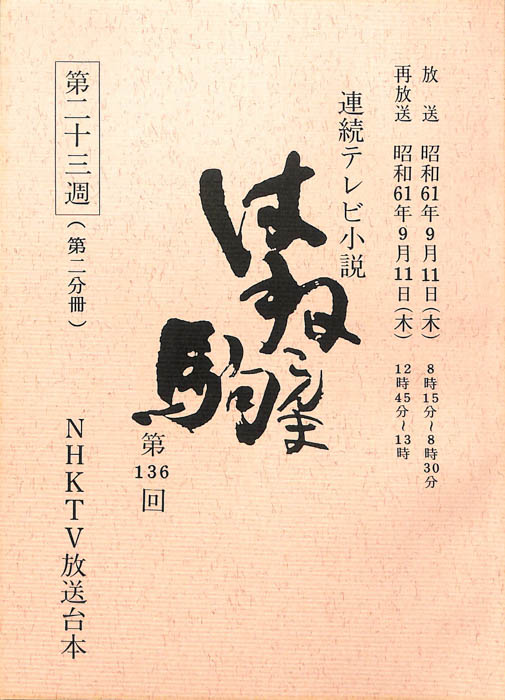 放　送　昭和61年9月11日(木)　8時15分～8時30分
再放送　昭和61年9月11日(木)　12時45分～13時
連続テレビ小説
はね駒
こんま
第136回
第二十三週(第二分冊)
NHKTV放送台本